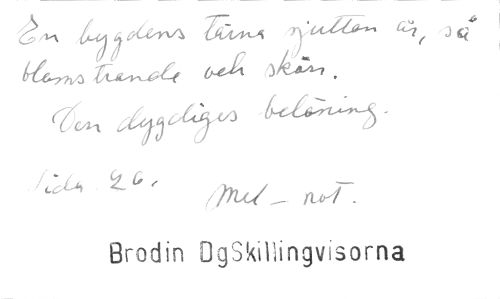 En bygdens tärna sjutton år, så
blomstrande och skön.
Den dygdiges belöning.
Sida 26.
Mel - not.
Brodin DgSkillingvisorna